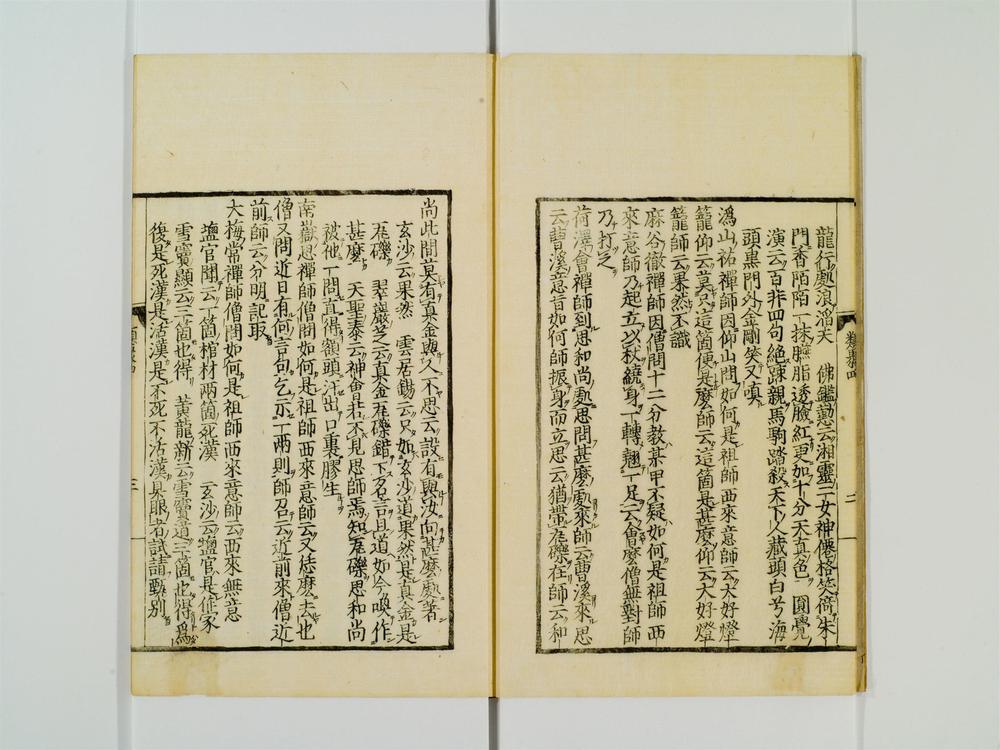 龍行處浪滔天　佛鑑懃云湘靈二女神僊格笑倚朱
門香陌陌一抹臙脂透臉紅更加十分天真色　圓覺
演云百非四句絶踈親馬駒踏殺天下人藏頭白兮海
頭黒門外金剛笑又嗔
潙山祐禪師因仰山問如何是祖師西來意師云大好燈
籠仰云莫只這箇便是麽師云這箇是甚麽仰云大好燈
籠師云果然不識
麻谷徹禪師因僧問十二分教某甲不疑如何是祖師西
來意師乃起立以杖繞身一轉翹一足云會麽僧無對師
乃打之
荷澤會禪師到思和尚處思問甚麽處來師云曹溪來思
云曹溪意旨如何師振身而立思云猶帶瓦礫在師云和
尚此間莫有真金與人不思云設有與汝向甚麽處著
玄沙云果然　雲居錫云只如玄沙道果然是真金是
瓦礫　翠巖芝云真金瓦礫錯下名言且道如今喚作
甚麽　天聖泰云神會若不見思師焉知瓦礫思和尚
被他一問直得額頭汗出口裏膠生
南嶽思禪師僧問如何是祖師西來意師云又恁麽去也
僧又問近日有何言句乞示一兩則師召云近前來僧近
前師云分明記取
大梅常禪師僧問如何是祖師西來意師云西來無意
塩官聞云一箇棺材兩箇死漢　玄沙云塩官是作家
雪竇顯云三箇也得　黄龍新云雪竇道三箇也得爲
復是死漢是活漢是不死不活漢具眼者試請甄別